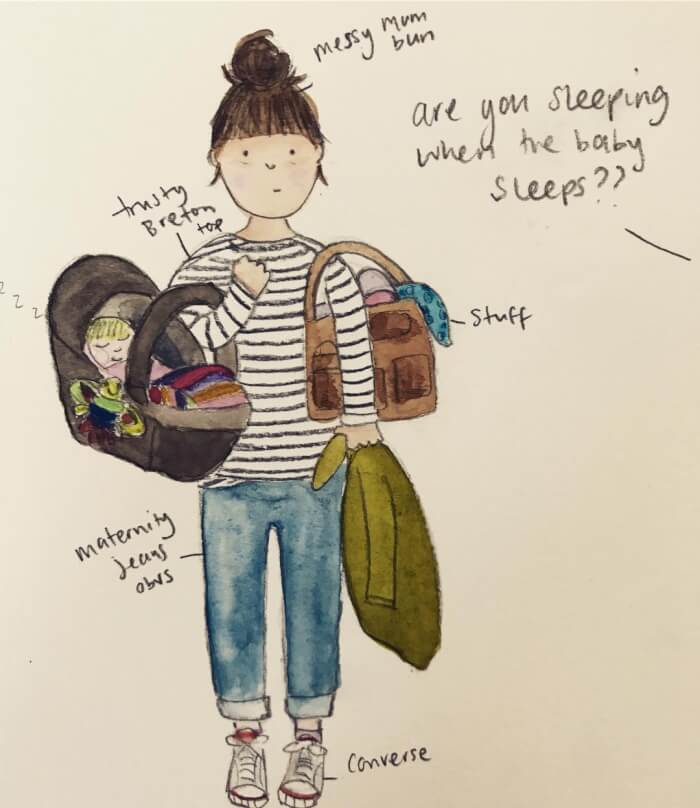 messy mum
bun
are you sleeping
when the baby
sleeps??
trusty
Breton
top
z z z
Stuff
maternity
jeans
obvs
Converse